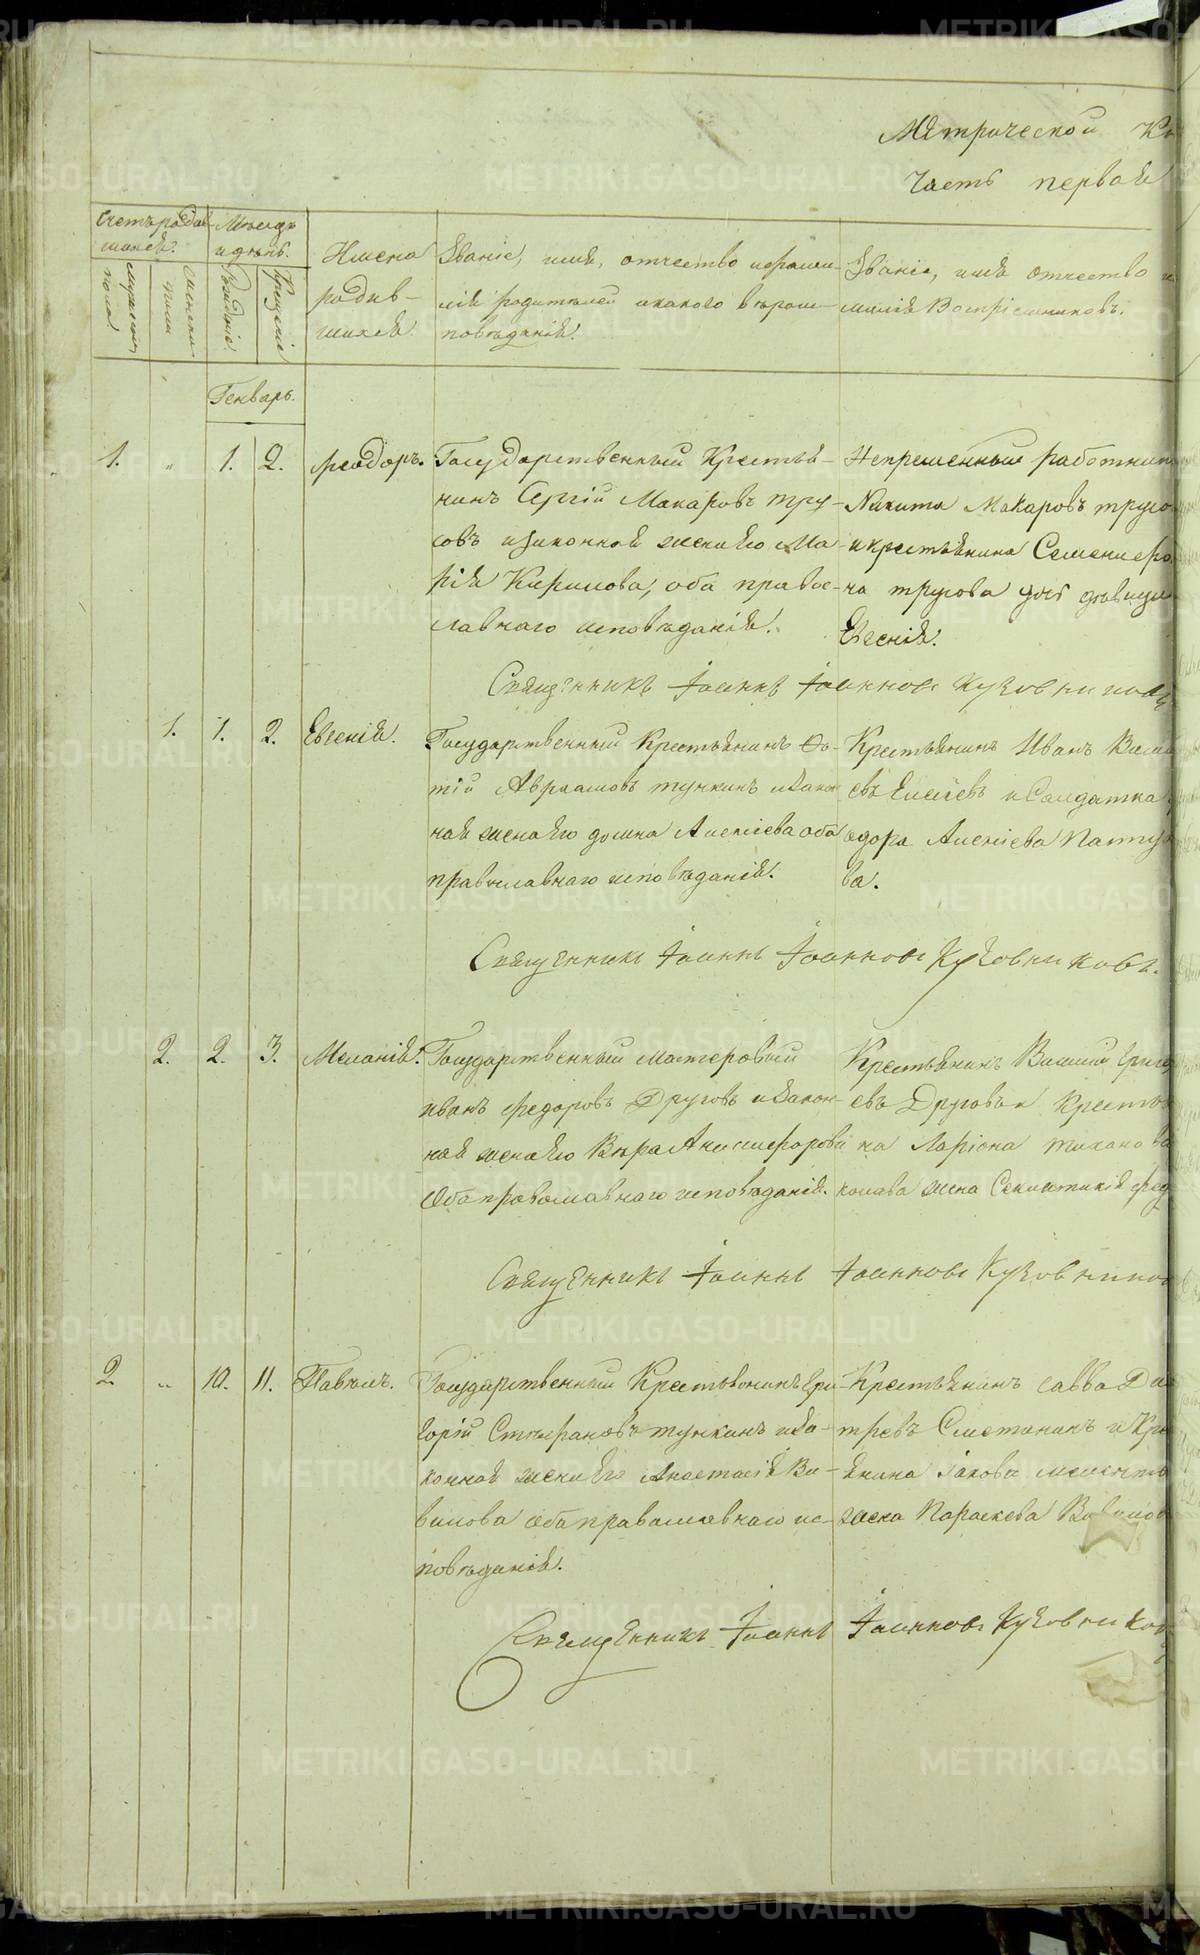 Метрической
Часть первая
Счетъ родив-
шихся.
Мѣсяцъ
и день.
мужеска
пола
женска
пола
рожденіе.
крещеніе
Имена
родив-
шихся.
Званіе, имя, отчество и фами-
лія родителей и какого вѣроис-
повѣданія.
Званіе, имя отчество и
милія Воспріемниковъ.
Генварь.
1. „ 1. 2. Феодоръ.
Государственный Крестья-
нинъ Сергій Макаровъ тру-
совъ и законная жена его Ма-
рія Кирилова, оба правос-
лавнаго исповѣданія.
Непременный работник
Никита Макаровъ трусо
и крестьянина Семена
на трусова дочь девица
Евгенія.
Священникъ Іоаннъ Іоанновъ Кузовников
1. 1. 2. Евгенія.
Государственный Крестьянинъ Фо-
тій Авраамовъ тункинъ и закон
ная жена его домна Алексіева оба
православнаго исповѣданія.
Крестьянинъ Иванъ Васил
евъ Елисѣевъ и Солдатка
одора Алексіева
ва.
Священникъ Іоаннъ Іоанновъ Кузовниковъ.
2. 2. 3. Меланія.
Государственный мастеровый
иванъ федоровъ Друговъ и Закон-
ная жена его Вѣра Аникифорова
Оба православнаго исповѣданія.
Крестьянинъ Василий Григор
евъ Друговъ и Крестья
на Ларіона тихано
жена Секлитикія фед
Священникъ Іоаннъ Іоанновъ Кузовников
2. „ 10. 11. Павелъ.
Государственный Крестьянинъ Гри-
горій Стефановъ тункинъ и за-
конная жена его Анастасія Ва-
вилова оба православнаго ис-
повѣданія.
Крестьянинъ савва Дми
тревъ Сметанинъ и Кре
янина Іакова
жена Параскева Вавилов
Священникъ Іоаннъ Іоанновъ Кузовников